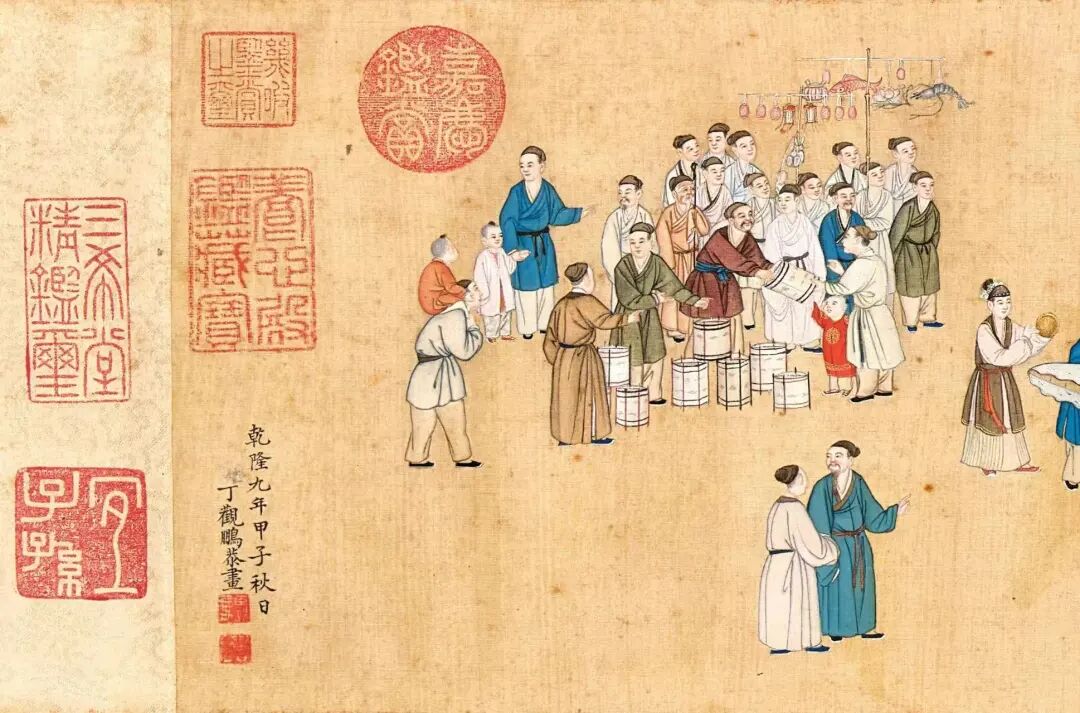 嘉慶
鑑賞
幾暇
鑒賞
之璽
養心殿
鑑藏寶
乾隆九年甲子秋日
丁觀鵬恭畫
三希堂
精鑑璽
宜
子孫